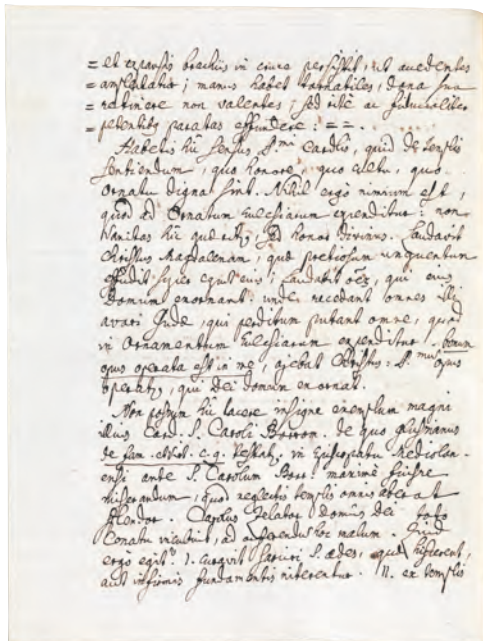 = et expansis brachiis in cruce persistit, ut accedentes
= amplectatur; manus habet tornatiles, dona sua
= retinere non valentes; sed rite ac
= petentibq paratas effundere: = = .
Habetis hic sensus, S. Carolis, quid de templis
sentiendum, quo honore, quo cultu, quo
ornatu digna sint. Nihil ergo nimium est,
quod ad Ornatum Ecclesiarum expenditur: non
Vanitas hic queritq, sed honor divinus. Laudavit
Christus Magdalenam, que pretiosum unguentum
effudit super caput eius; laudabit oēs, qui eius
Domum exornant: unde recedant omnes illi
avari Jude, qui perditum putant omne, quod
in Ornamentum Ecclesiarum expenditur. bonum
opus operata est in me, ajebat Christus: S.mum opus
operatq, qui Dei domum exornat.
Non possum hic tacere insigne exemplum magni
illius Card. S. Caroli Borrom. de quo
de fam. c. 9. Restatq, in Episcopatu Mediolan-
ensi ante S. Carolum Borr: maxime fuisse
miserandum, quod neglectis templis omnis aberat
splendor. Carolus Zelator domûs Dei toto
Conatu incubuit, ad auferendum hoc malum. Quid
ergo egit? I. curavit sarciri S. aedes, que
aut infirmis fundamentis niterentur. II. ex templis